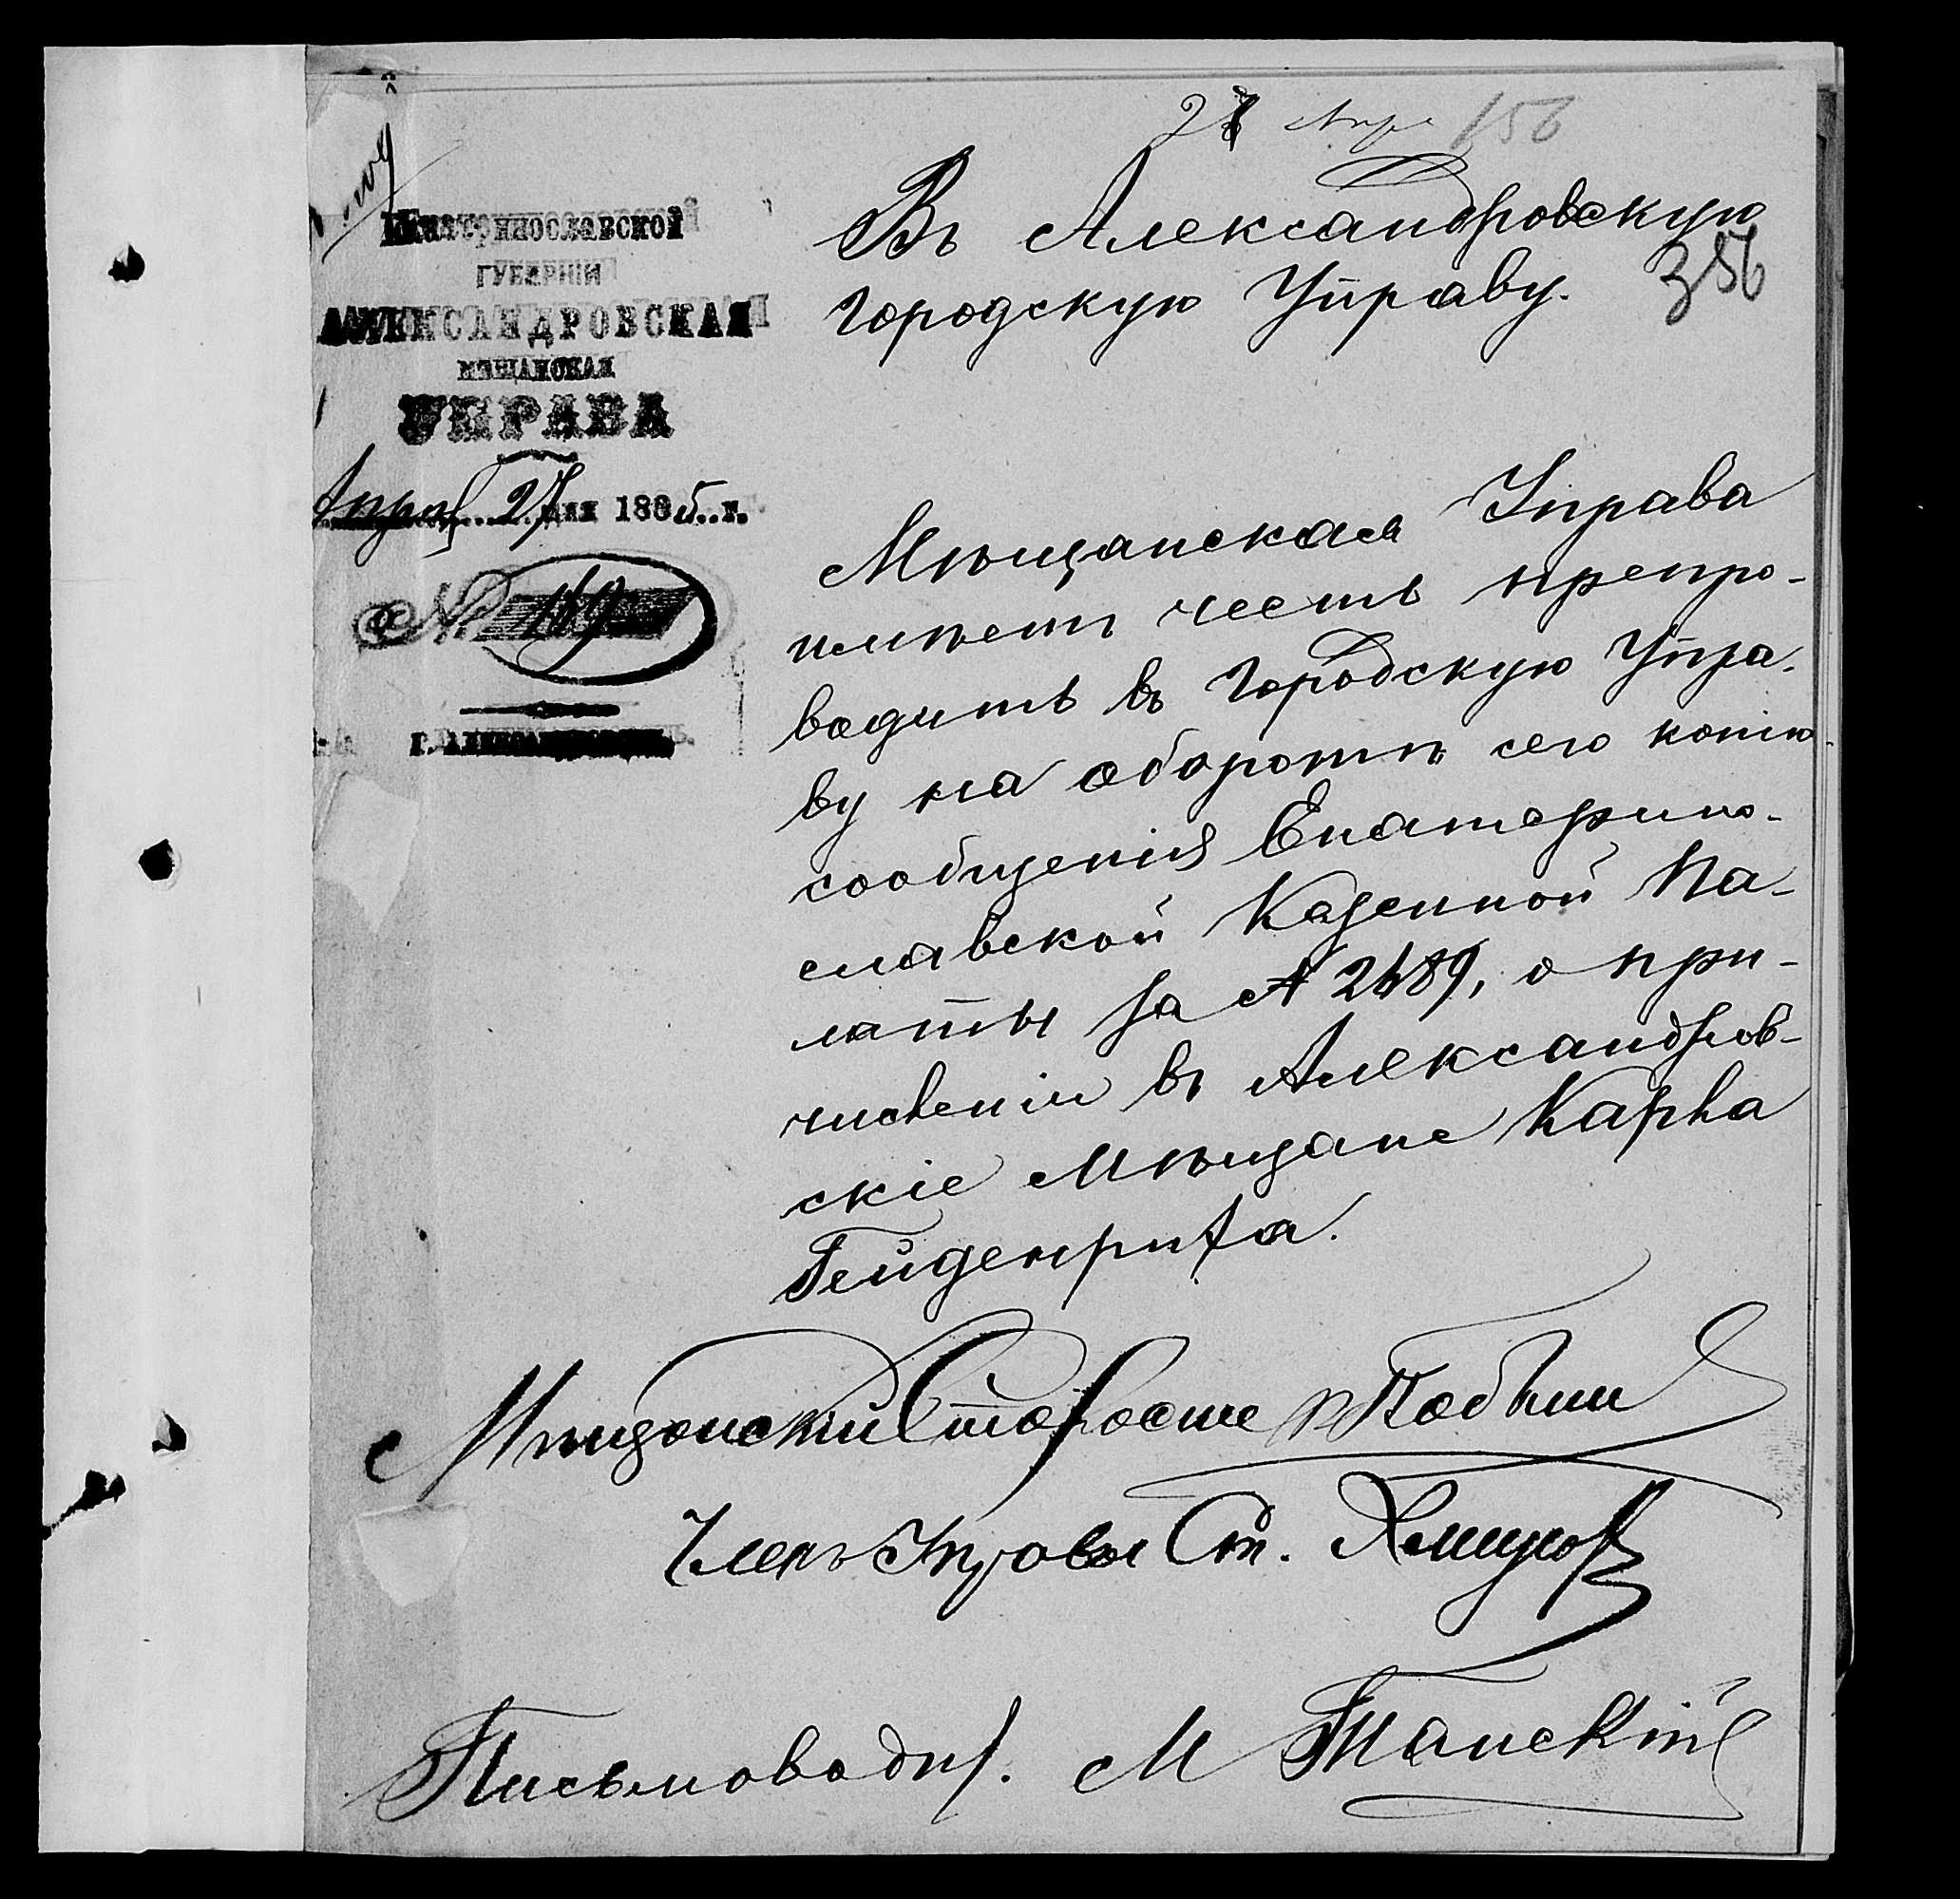 27 Апр 156
Въ Александровскую
Городскую Управу.
356
Екатеринославской
ГУБЕРНІИ
АЛЕКСАНДРОВСКАЯ
МѢЩАНСКАЯ
УПРАВА
Апрѣл 27 дня 1885 г.
№ 169
Г. АЛЕКСАНДРОВСКЪ.
Мѣщанская Управа
имѣетъ честь препро-
водить въ Городскую Упра-
ву на оборотѣ сего копію
сообщенія Екатерино-
славской Казенной Па-
латы за № 2489, о при-
численіи въ Александров-
скіе Мѣщане Карла
Гейденриха.
Мѣщанскій Староста
Членъ Управы Ст.
Письмоводит. М